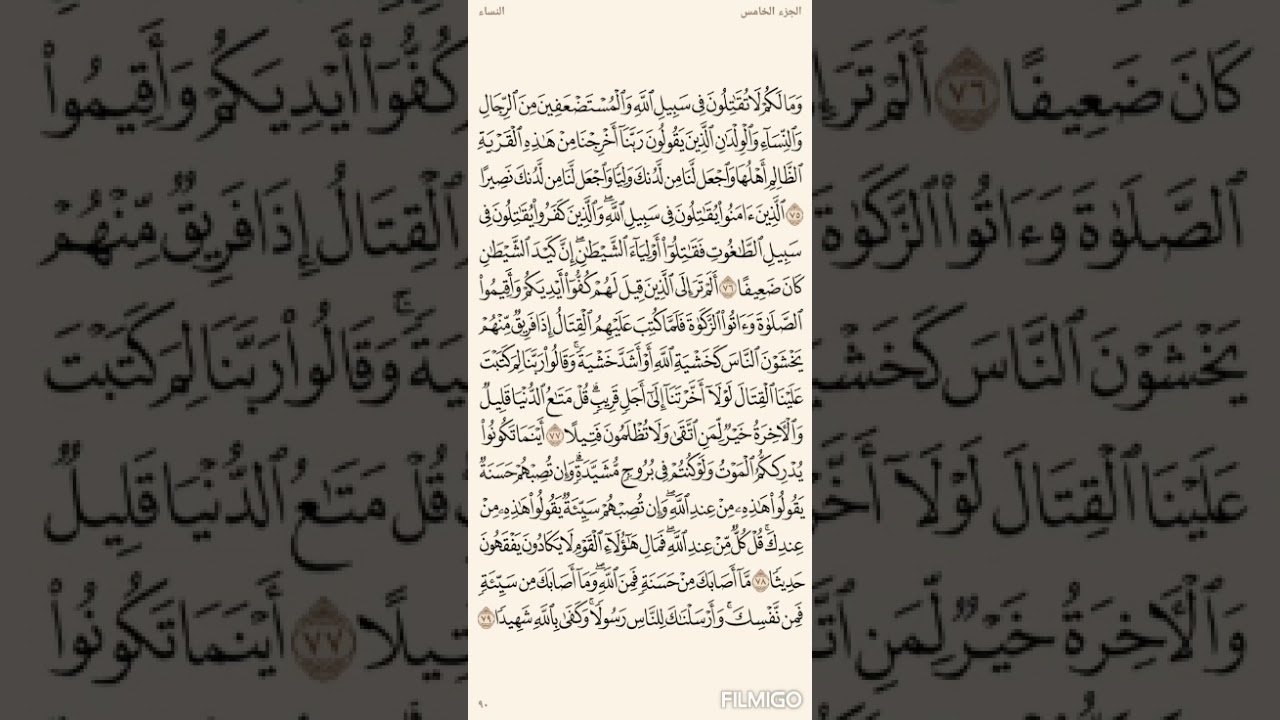 الجزء الخامس
النساء
وَمَا لَكُمْ لَا تُقَٰتِلُونَ فِى سَبِيلِ ٱللَّهِ وَٱلْمُسْتَضْعَفِينَ مِنَ ٱلرِّجَالِ
وَٱلنِّسَآءِ وَٱلْوِلْدَٰنِ ٱلَّذِينَ يَقُولُونَ رَبَّنَآ أَخْرِجْنَا مِنْ هَٰذِهِ ٱلْقَرْيَةِ
ٱلظَّالِمِ أَهْلُهَا وَٱجْعَل لَّنَا مِن لَّدُنكَ وَلِيًّا وَٱجْعَل لَّنَا مِن لَّدُنكَ نَصِيرًا
٧٥ ٱلَّذِينَ ءَامَنُوا۟ يُقَٰتِلُونَ فِى سَبِيلِ ٱللَّهِ ۖ وَٱلَّذِينَ كَفَرُوا۟ يُقَٰتِلُونَ فِى
سَبِيلِ ٱلطَّٰغُوتِ فَقَٰتِلُوٓا۟ أَوْلِيَآءَ ٱلشَّيْطَٰنِ ۖ إِنَّ كَيْدَ ٱلشَّيْطَٰنِ
كَانَ ضَعِيفًا ٧٦ أَلَمْ تَرَ إِلَى ٱلَّذِينَ قِيلَ لَهُمْ كُفُّوٓا۟ أَيْدِيَكُمْ وَأَقِيمُوا۟
ٱلصَّلَوٰةَ وَءَاتُوا۟ ٱلزَّكَوٰةَ فَلَمَّا كُتِبَ عَلَيْهِمُ ٱلْقِتَالُ إِذَا فَرِيقٌ مِّنْهُمْ
يَخْشَوْنَ ٱلنَّاسَ كَخَشْيَةِ ٱللَّهِ أَوْ أَشَدَّ خَشْيَةً ۚ وَقَالُوا۟ رَبَّنَا لِمَ كَتَبْتَ
عَلَيْنَا ٱلْقِتَالَ لَوْلَآ أَخَّرْتَنَآ إِلَىٰٓ أَجَلٍ قَرِيبٍ ۗ قُلْ مَتَٰعُ ٱلدُّنْيَا قَلِيلٌ
وَٱلْءَاخِرَةُ خَيْرٌ لِّمَنِ ٱتَّقَىٰ وَلَا تُظْلَمُونَ فَتِيلًا ٧٧ أَيْنَمَا تَكُونُوا۟
يُدْرِككُّمُ ٱلْمَوْتُ وَلَوْ كُنتُمْ فِى بُرُوجٍ مُّشَيَّدَةٍ ۗ وَإِن تُصِبْهُمْ حَسَنَةٌ
يَقُولُوا۟ هَٰذِهِۦ مِنْ عِندِ ٱللَّهِ ۖ وَإِن تُصِبْهُمْ سَيِّئَةٌ يَقُولُوا۟ هَٰذِهِۦ مِنْ
عِندِكَ ۚ قُلْ كُلٌّ مِّنْ عِندِ ٱللَّهِ ۖ فَمَالِ هَٰٓؤُلَآءِ ٱلْقَوْمِ لَا يَكَادُونَ يَفْقَهُونَ
حَدِيثًا ٧٨ مَّآ أَصَابَكَ مِنْ حَسَنَةٍ فَمِنَ ٱللَّهِ ۖ وَمَآ أَصَابَكَ مِن سَيِّئَةٍ
فَمِن نَّفْسِكَ ۚ وَأَرْسَلْنَٰكَ لِلنَّاسِ رَسُولًا ۚ وَكَفَىٰ بِٱللَّهِ شَهِيدًا ٧٩
٩٠
FILMIGO